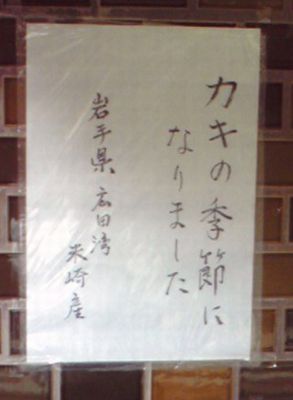 カキの季節に
なりました
岩手県 広田湾
米崎産